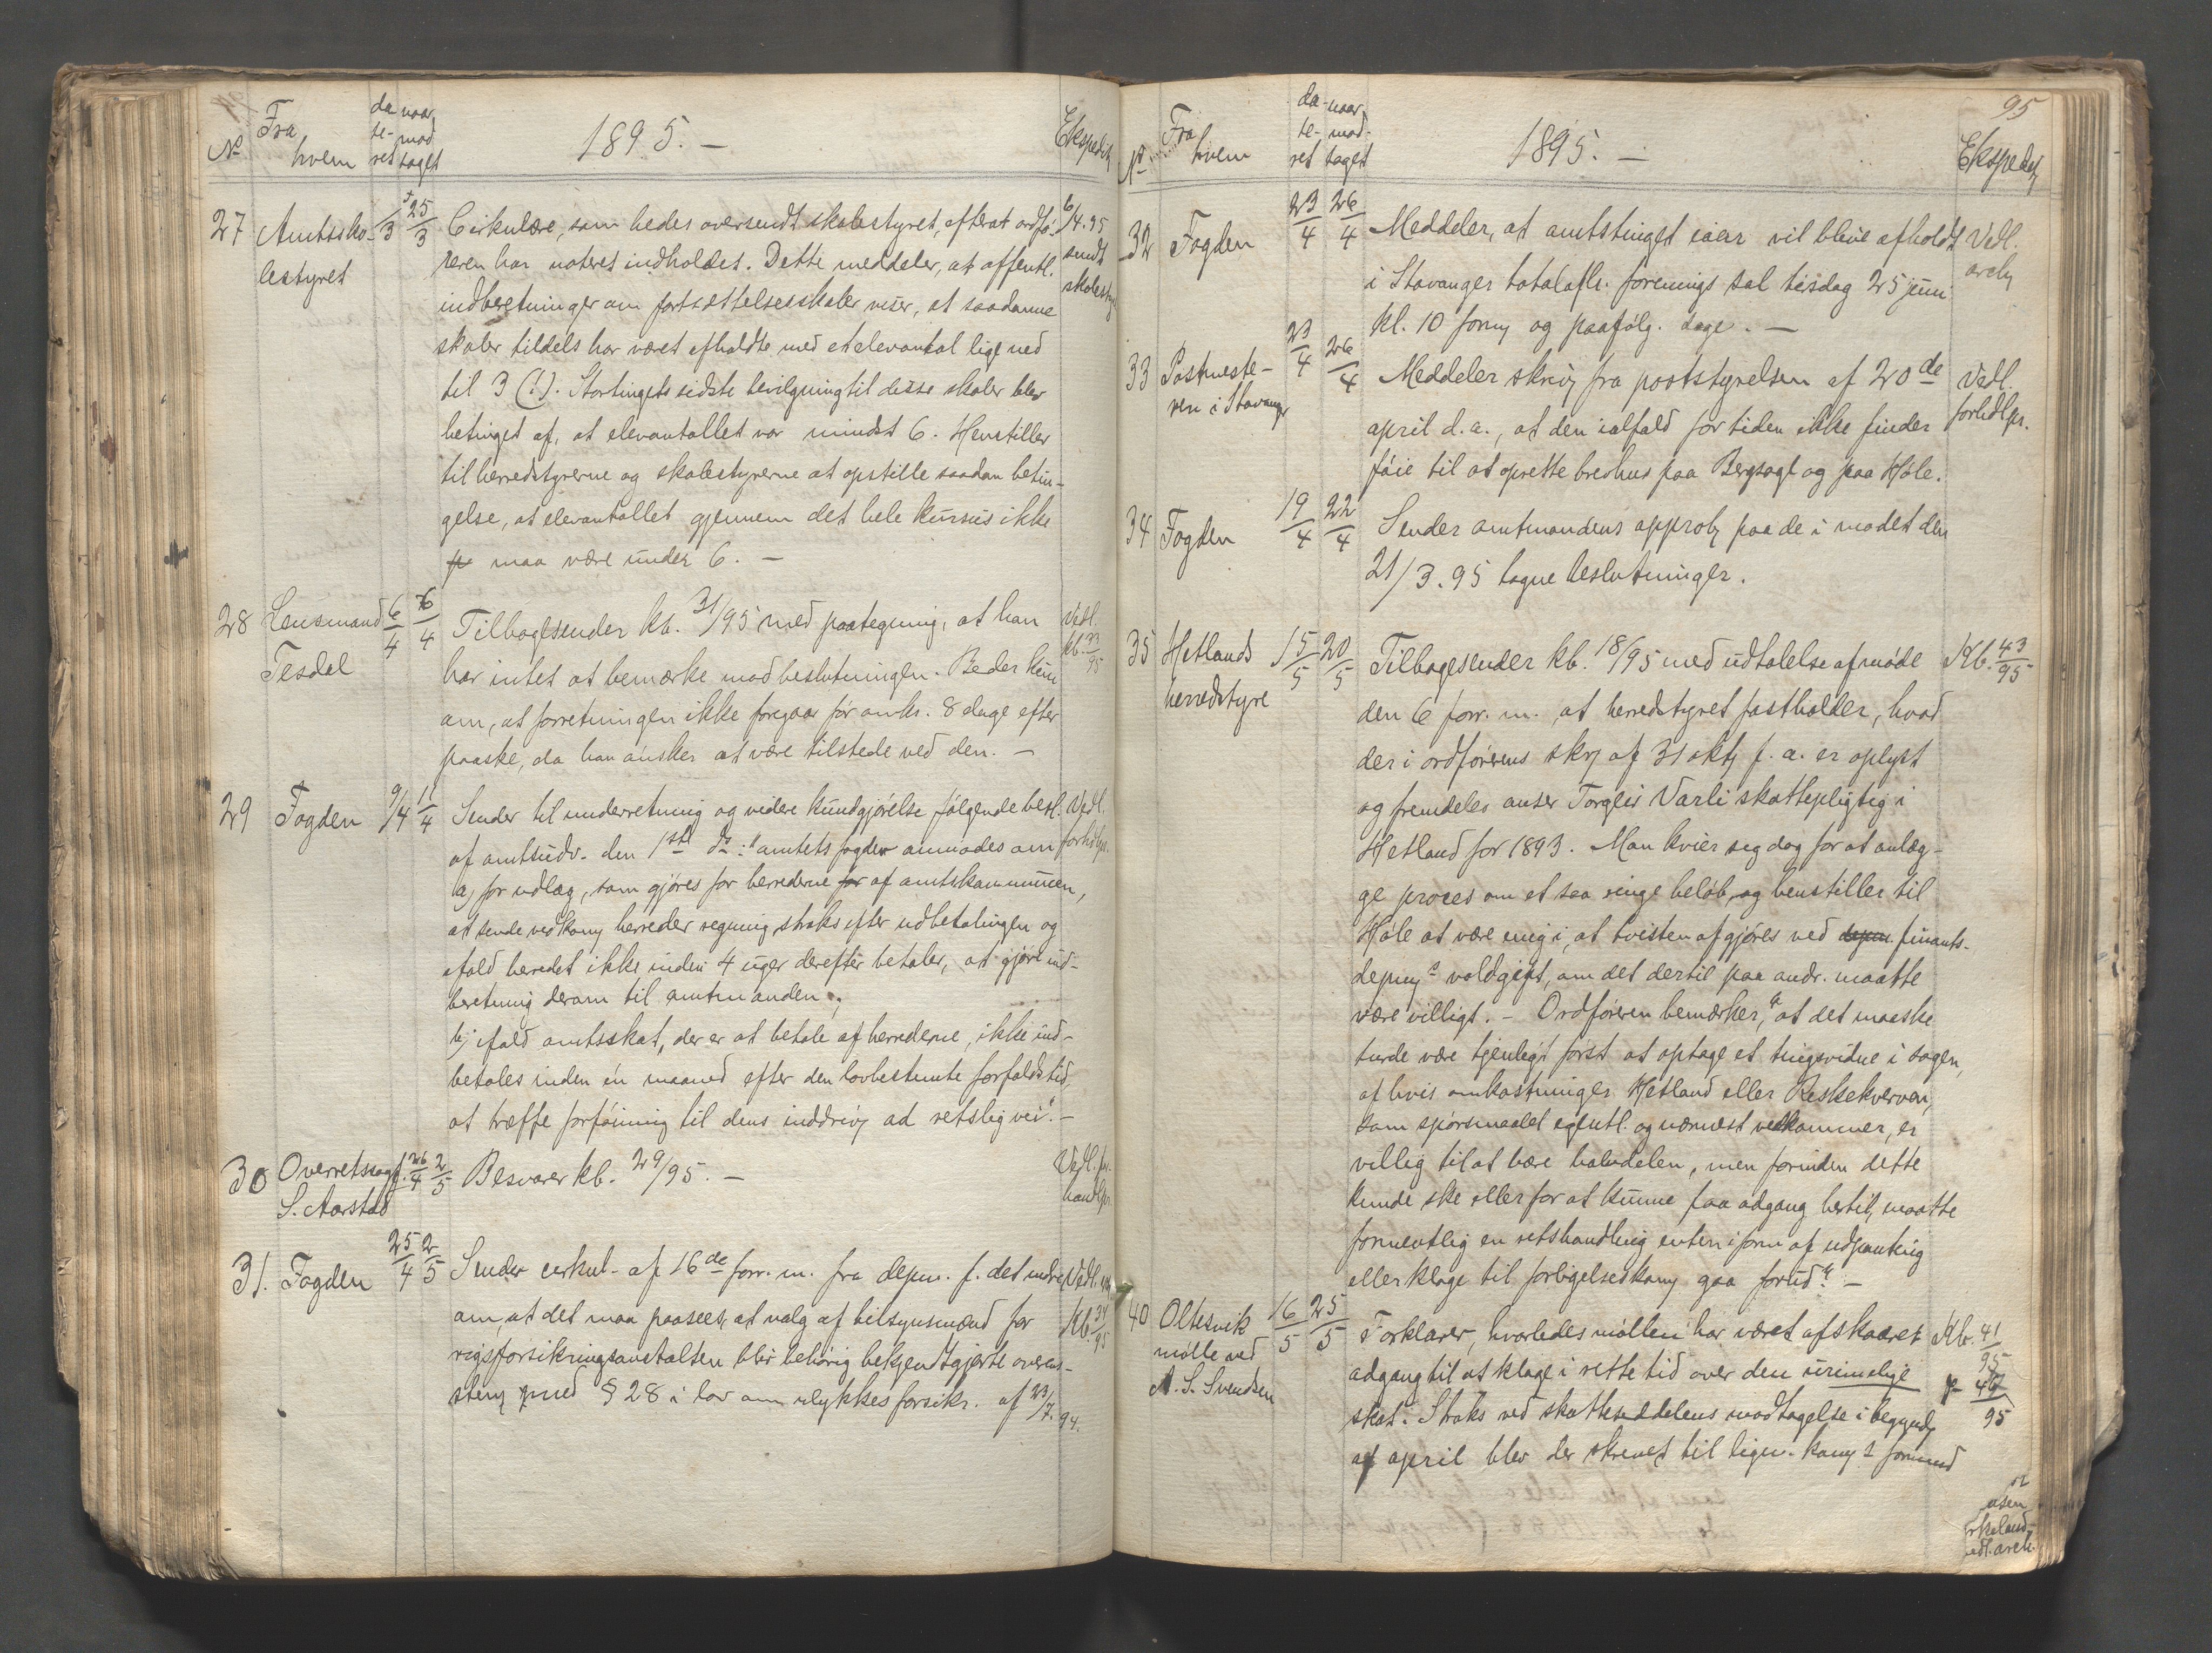 No Fra hvem da- te- ret naar mod taget 1895. — Ekspedt.
27 Amtssko- /3 25/3 Cirkulære, som bedes oversendt skolestyret, efterat ordfø- 6/4.95
lestyret reren har noteret indholdet. Dette meddeler, at offentl. sendt
indberetninger om fortsættelsesskoler viser, at saadanne skolesty
skoler tildels har været afholdte med et elevantal lige ned
til 3 (!). Stortingets sidste bevilgning til disse skoler blev
betinget af, at elevantallet var mindst 6. Henstiller
til herredstyrerne og skolestyrerne at opstille saadan betin-
gelse, at elevantallet gjennem det hele kursus ikke
maa være under 6. —
28 Lensmand 6/4 6/4 Tilbagesender kb. 31/95 med paategning, at han Vedl.
Tesdal har intet at bemærke mod beslutningen. Beder kun kb. 33/95
om, at forretningen ikke foregaar før omkr. 8 dage efter
paaske, da han ønsker at være tilstede ved den. —
29 Fogden 9/4 11/4 Sender til underretning og videre kundgjørelse følgende besl. Vedl.
af amtsudv. den 1ste ds: "amtets fogder anmodes om forhdlpr.
a, for udlæg, som gjøres for herrederne for af amtskommunen,
at sende vedkom herreder regning straks efter udbetalingen og
ifald herredet ikke inden 4 uger derefter betaler, at gjøre ind-
beretning derom til amtmanden;
b, ifald amtsskat, der er at betale af herrederne, ikke ind-
betales inden én maaned efter den lovbestemte forfaldstid,
at træffe forføining til dens inddriv ad retslig vei". —
30 Overretssagf. 26/4 2/5 Besvarer kb. 29/95. — Vedl. for-
S. Aarstad handlpr.
31. Fogden 25/4 2/5 Sender cirkul. af 16de forr. m. fra depm. f. det indre Vedl.
om, at det maa paasees, at valg af tilsynsmænd for Kb. 34/95
rigsforsikringsanstalten blir behørig bekjendtgjorte overens-
stem med § 28 i lov om ulykkesforsikr. af 23/7.94.
95
No Fra hvem da- te- ret naar mod- taget 1895. — Ekspedt.
32 Fogden 23/4 26/4 Meddeler, at amtstinget iaar vil blive afholdt Vedl.
i Stavanger totalafh. forenings sal tirsdag 25 juni arch
kl. 10 form og paafølg. dage. —
33 Postmeste- 23/4 26/4 Meddeler skriv fra poststyrelsen af 20de Vedl.
ren i Stavanger april d.a., at den ialfald for tiden ikke finder forhdlpr.
føie til at oprette brevhus paa Bergsagl og paa Høle.
34 Fogden 19/4 22/4 Sender amtmandens approb paa de i mødet den
21/3.95 tagne beslutninger.
35 Hetlands 15/5 20/5 Tilbagesender kb. 18/95 med udtalelse af møde Kb. 43/95
herredstyre den 6 forr. m. at herredstyret fastholder, hvad
der i ordførerens skr af 31 okt f. a. er oplyst
og fremdeles anser Torgeir Varli skattepligtig i
Hetland for 1893. Man kvier seg dog for at anlæg-
ge proces om et saa ringe beløb, og henstiller til
Høle at være enig i, at tvisten afgjøres ved depm. finants-
depm's voldgift, om det dertil paa andr. maatte
være villigt. — Ordføreren bemærker, "at det maaske
turde være tjenligt først at optage et tingsvidne i sagen,
af hvis omkostninger Hetland eller Reskekverven,
som spørsmaalet egentl. og nærmest vedkommer, er
villig til at bære halvdelen, men forinden dette
kunde ske eller for at kunne faa adgang hertil, maatte
formentlig en retshandling enten i form af udpantning
eller klage til forligelseskom gaa forud". —
40 Oltesvik 16/5 25/5 Forklarer, hvorledes møllen har været afskaaret Kb. 41/95
mølle ved adgang til at klage i rette tid over den urimelige
A. S. Svendsen skat. Straks ved skatteseddelens modtagelse i begynd 95
af april blev der skrevet til lign. kom's formand